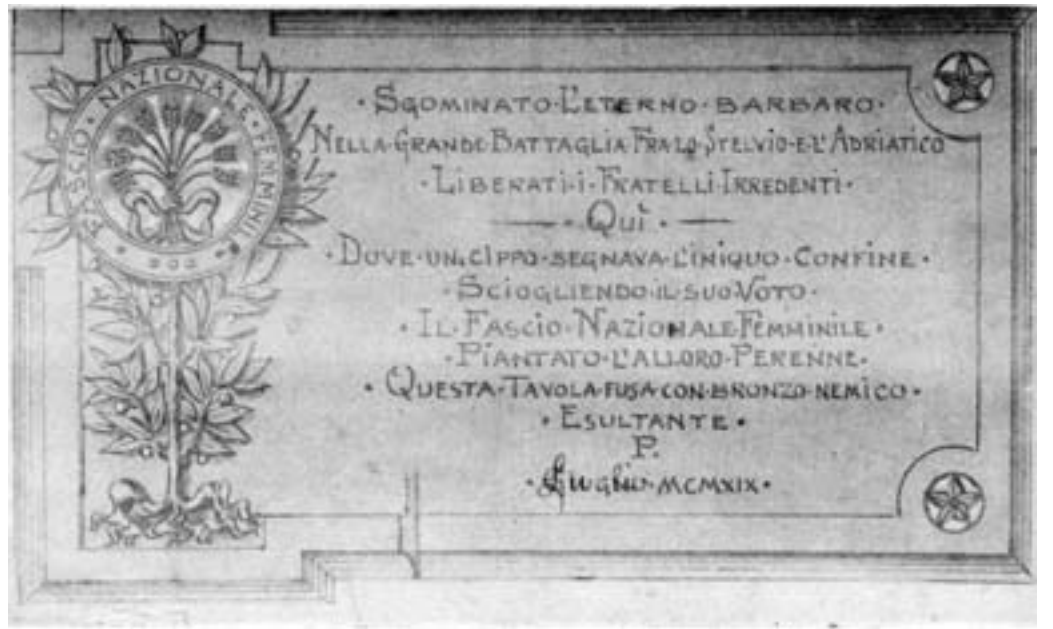 FASCIO · NAZIONALE · FEMMINILE
· SGOMINATO · L'ETERNO · BARBARO ·
NELLA · GRANDE · BATTAGLIA · FRA · LO · STELVIO · E · L'ADRIATICO
· LIBERATI · I · FRATELLI · IRREDENTI ·
· QUÌ ·
· DOVE · UN · CIPPO · SEGNAVA · L'INIQUO · CONFINE ·
· SCIOGLIENDO · IL · SUO · VOTO ·
· IL · FASCIO · NAZIONALE · FEMMINILE ·
· PIANTATO · L'ALLORO · PERENNE ·
· QUESTA · TAVOLA · FUSA · CON · BRONZO · NEMICO ·
· ESULTANTE ·
P.
· Luglio · MCMXIX ·